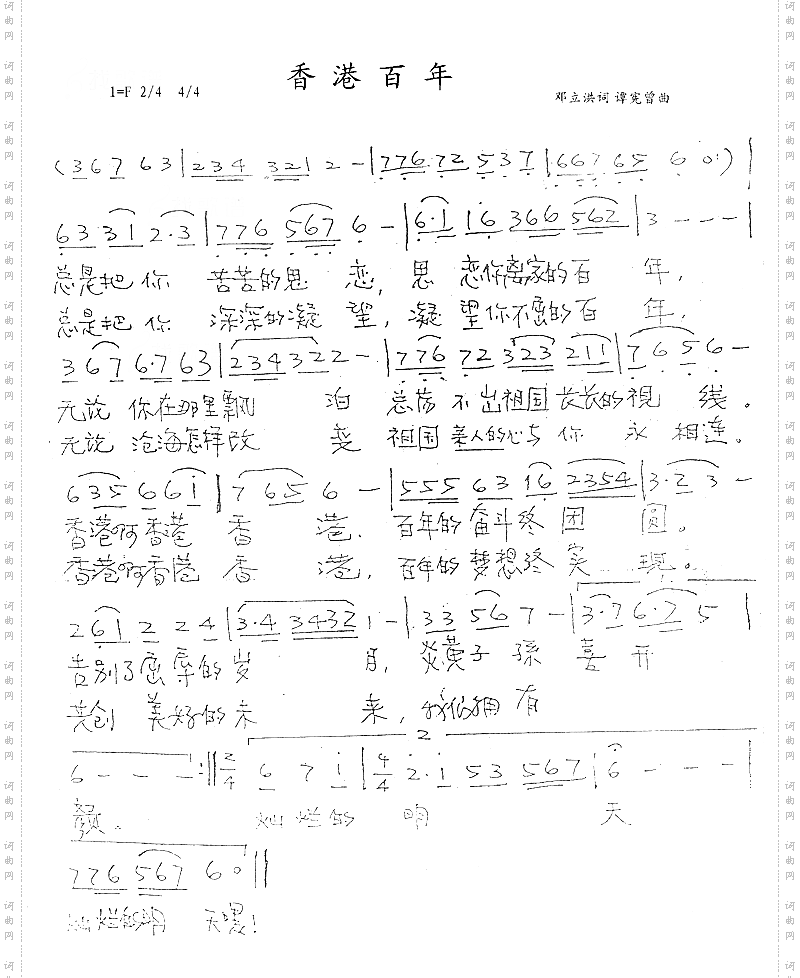 香港百年
1=F 2/4 4/4
邓立洪词 谭宪曾曲
(3 6 7 6 3 | 2 3 4 3 2 1 2 - | 7 7 6 7 2 5 3 7 | 6 6 7 6 5 6 0 )|
6 3 3 1 2·3 | 7 7 6 5 6 7 6 - | 6·1 1 6 3 6 6 5 6 2 | 3 - - - |
总是把你 苦苦的思 恋, 思 恋你离家的百 年,
总是把你 深深的凝 望, 凝 望你不屈的百 年,
3 6 7 6·7 6 3 | 2 3 4 3 2 2 - | 7 7 6 7 2 3 2 3 2 1 1 | 7 6 5 6 -
无论 你在那里飘 泊 总荡 不出祖国长长的視 线。
无论 沧海怎样改 变 祖国亲人的心与 你 永 相连。
6 3 5 6 6 1 | 7 6 5 6 - | 5 5 5 6 3 1 6 2 3 5 4 | 3·2 3 -
香港啊香港 香 港, 百年的奋斗终 团 圆。
香港啊香港 香 港, 百年的梦想终 实 現。
2 6 1 2 2 4 | 3·4 3 4 3 2 1 - | 3 3 5 6 7 - | 3·7 6·7 5 |
告别了屈辱的岁 月, 炎黄子 孫 喜 开
共创 美好的未 来, 我们拥 有
2
6 - - - :‖ 2/4 6 7 1 | 4/4 2·1 5 3 5 6 7 | 6 - - - |
颜。 灿烂的 明 天
7 7 6 5 6 7 6 0 ‖
灿烂的明 天嘿!
词曲网